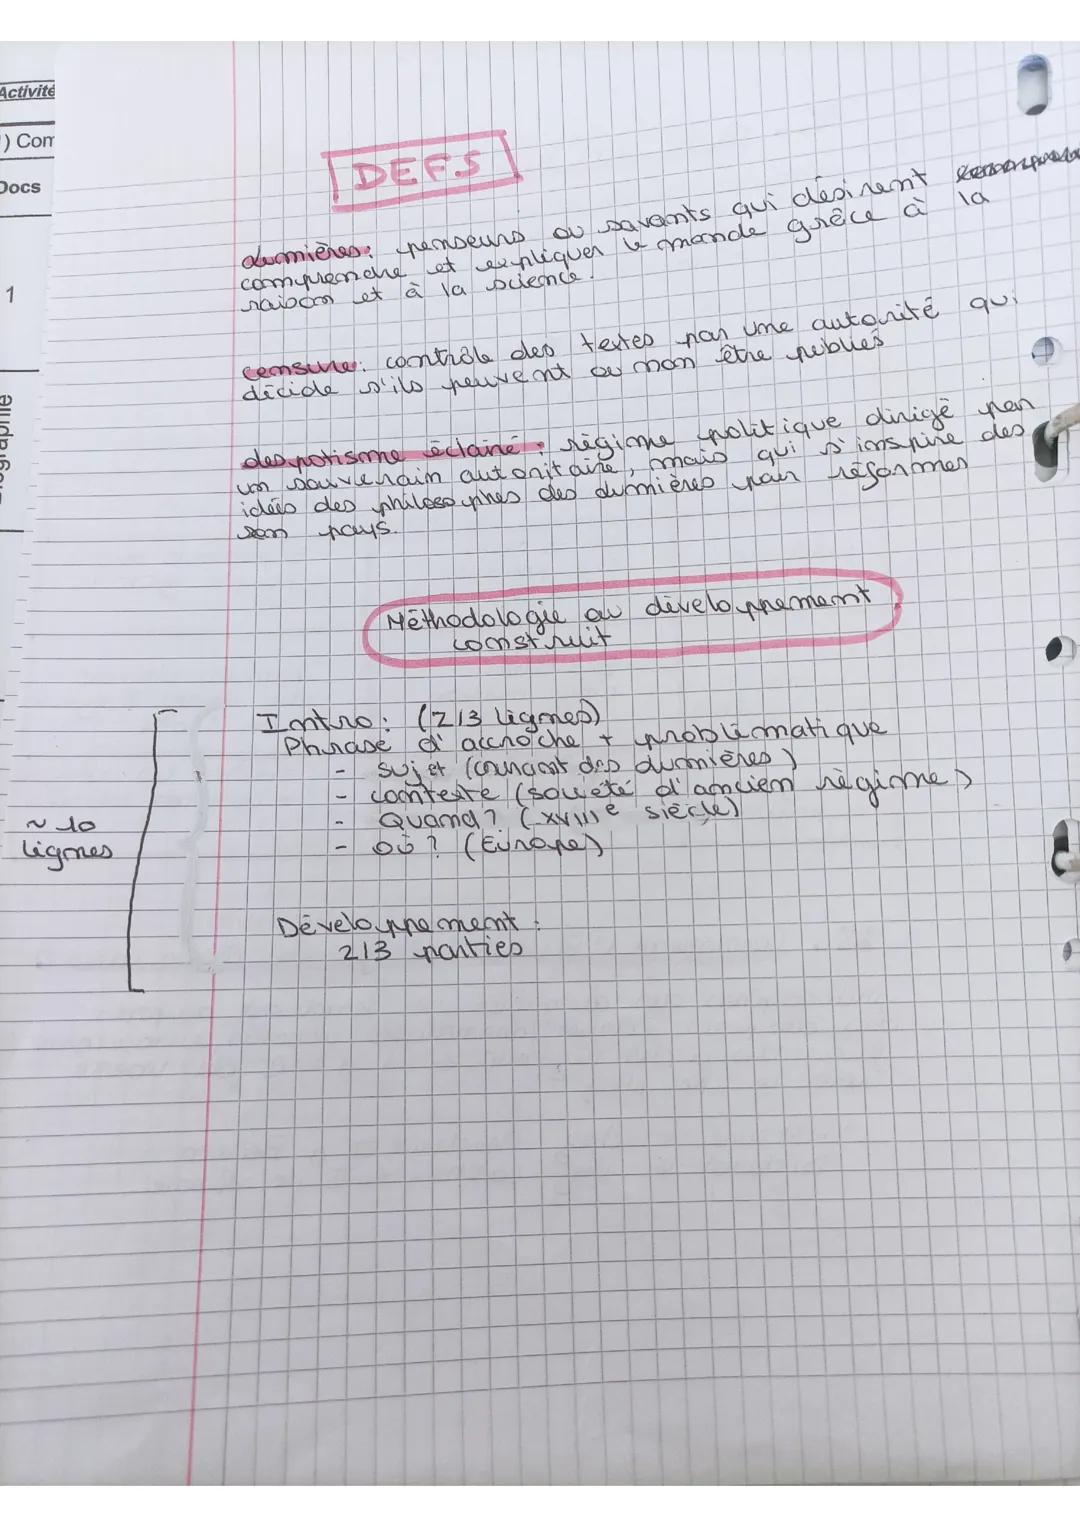 Activité
) Com
Docs
1
DEFS
Lumières: penseurs ou savants qui désirent
comprendre et expliquer le monde grâce à la
raison et à la science.
censure: contrôle des textes par une autorité qui
décide s'ils peuvent ou non être publiés
despotisme éclairé: régime politique dirigé par
un souverain autoritaire, mais qui s'inspire des
idées des philosophes des Lumières pour réformes
son pays.
Méthodologie au développement
construit
Intro: (2/3 lignes)
Phrase d'accroche + problématique
- sujet (courant des Lumières)
- contexte (société d'ancien régime)
- Quand? (XVIIIe siècle)
- où? (Europe)
~ 10
lignes
Développement:
2/3 parties